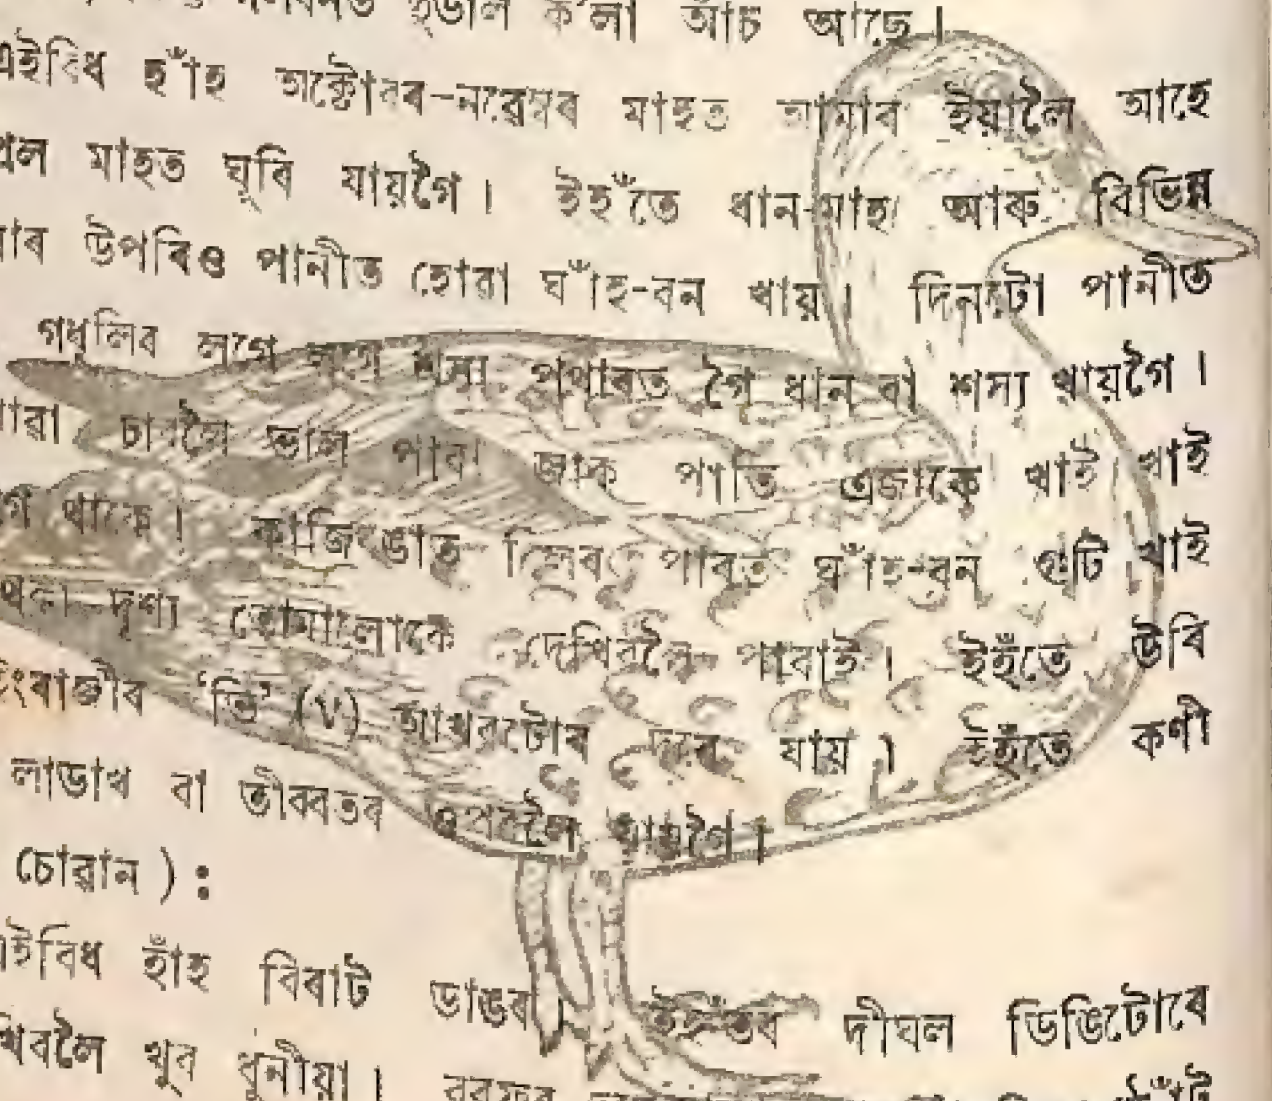 হালধীয়া ক'লা আঁচ আছে।
এইবিধ হাঁহ অক্টোবৰ-নৱেম্বৰ মাহত আমাৰ ইয়ালৈ আহে
মাহত ঘূৰি যায়গৈ। ইহঁতে ধান-মাহ আৰু বিভিন্ন
উপৰিও পানীত হোৱা ঘাঁহ-বন খায়। দিনটো পানীত
গধূলিৰ লগে লগে শস্য পথাৰত গৈ ধান বা শস্য খায়গৈ।
চাবলৈ ভাল পাব। জাক পাতি এজাকে খাই খাই
থাকে। কাজিৰঙাত বিলৰ পাৰত ঘাঁহ-বন গুটি খাই
থকা দৃশ্য তোমালোকে দেখিবলৈ পাবাই। ইহঁতে উৰি
ইংৰাজীৰ ‘ভি’ (V) আখৰটোৰ দৰে যায়। ইহঁতে কণী
লাডাখ বা তীব্বতৰ ওপৰলৈ যায়গৈ।
চোৱান ) :
এইবিধ হাঁহ বিৰাট ডাঙৰ। ইহঁতৰ দীঘল ডিঙিটোৰে
খুব ধুনীয়া।